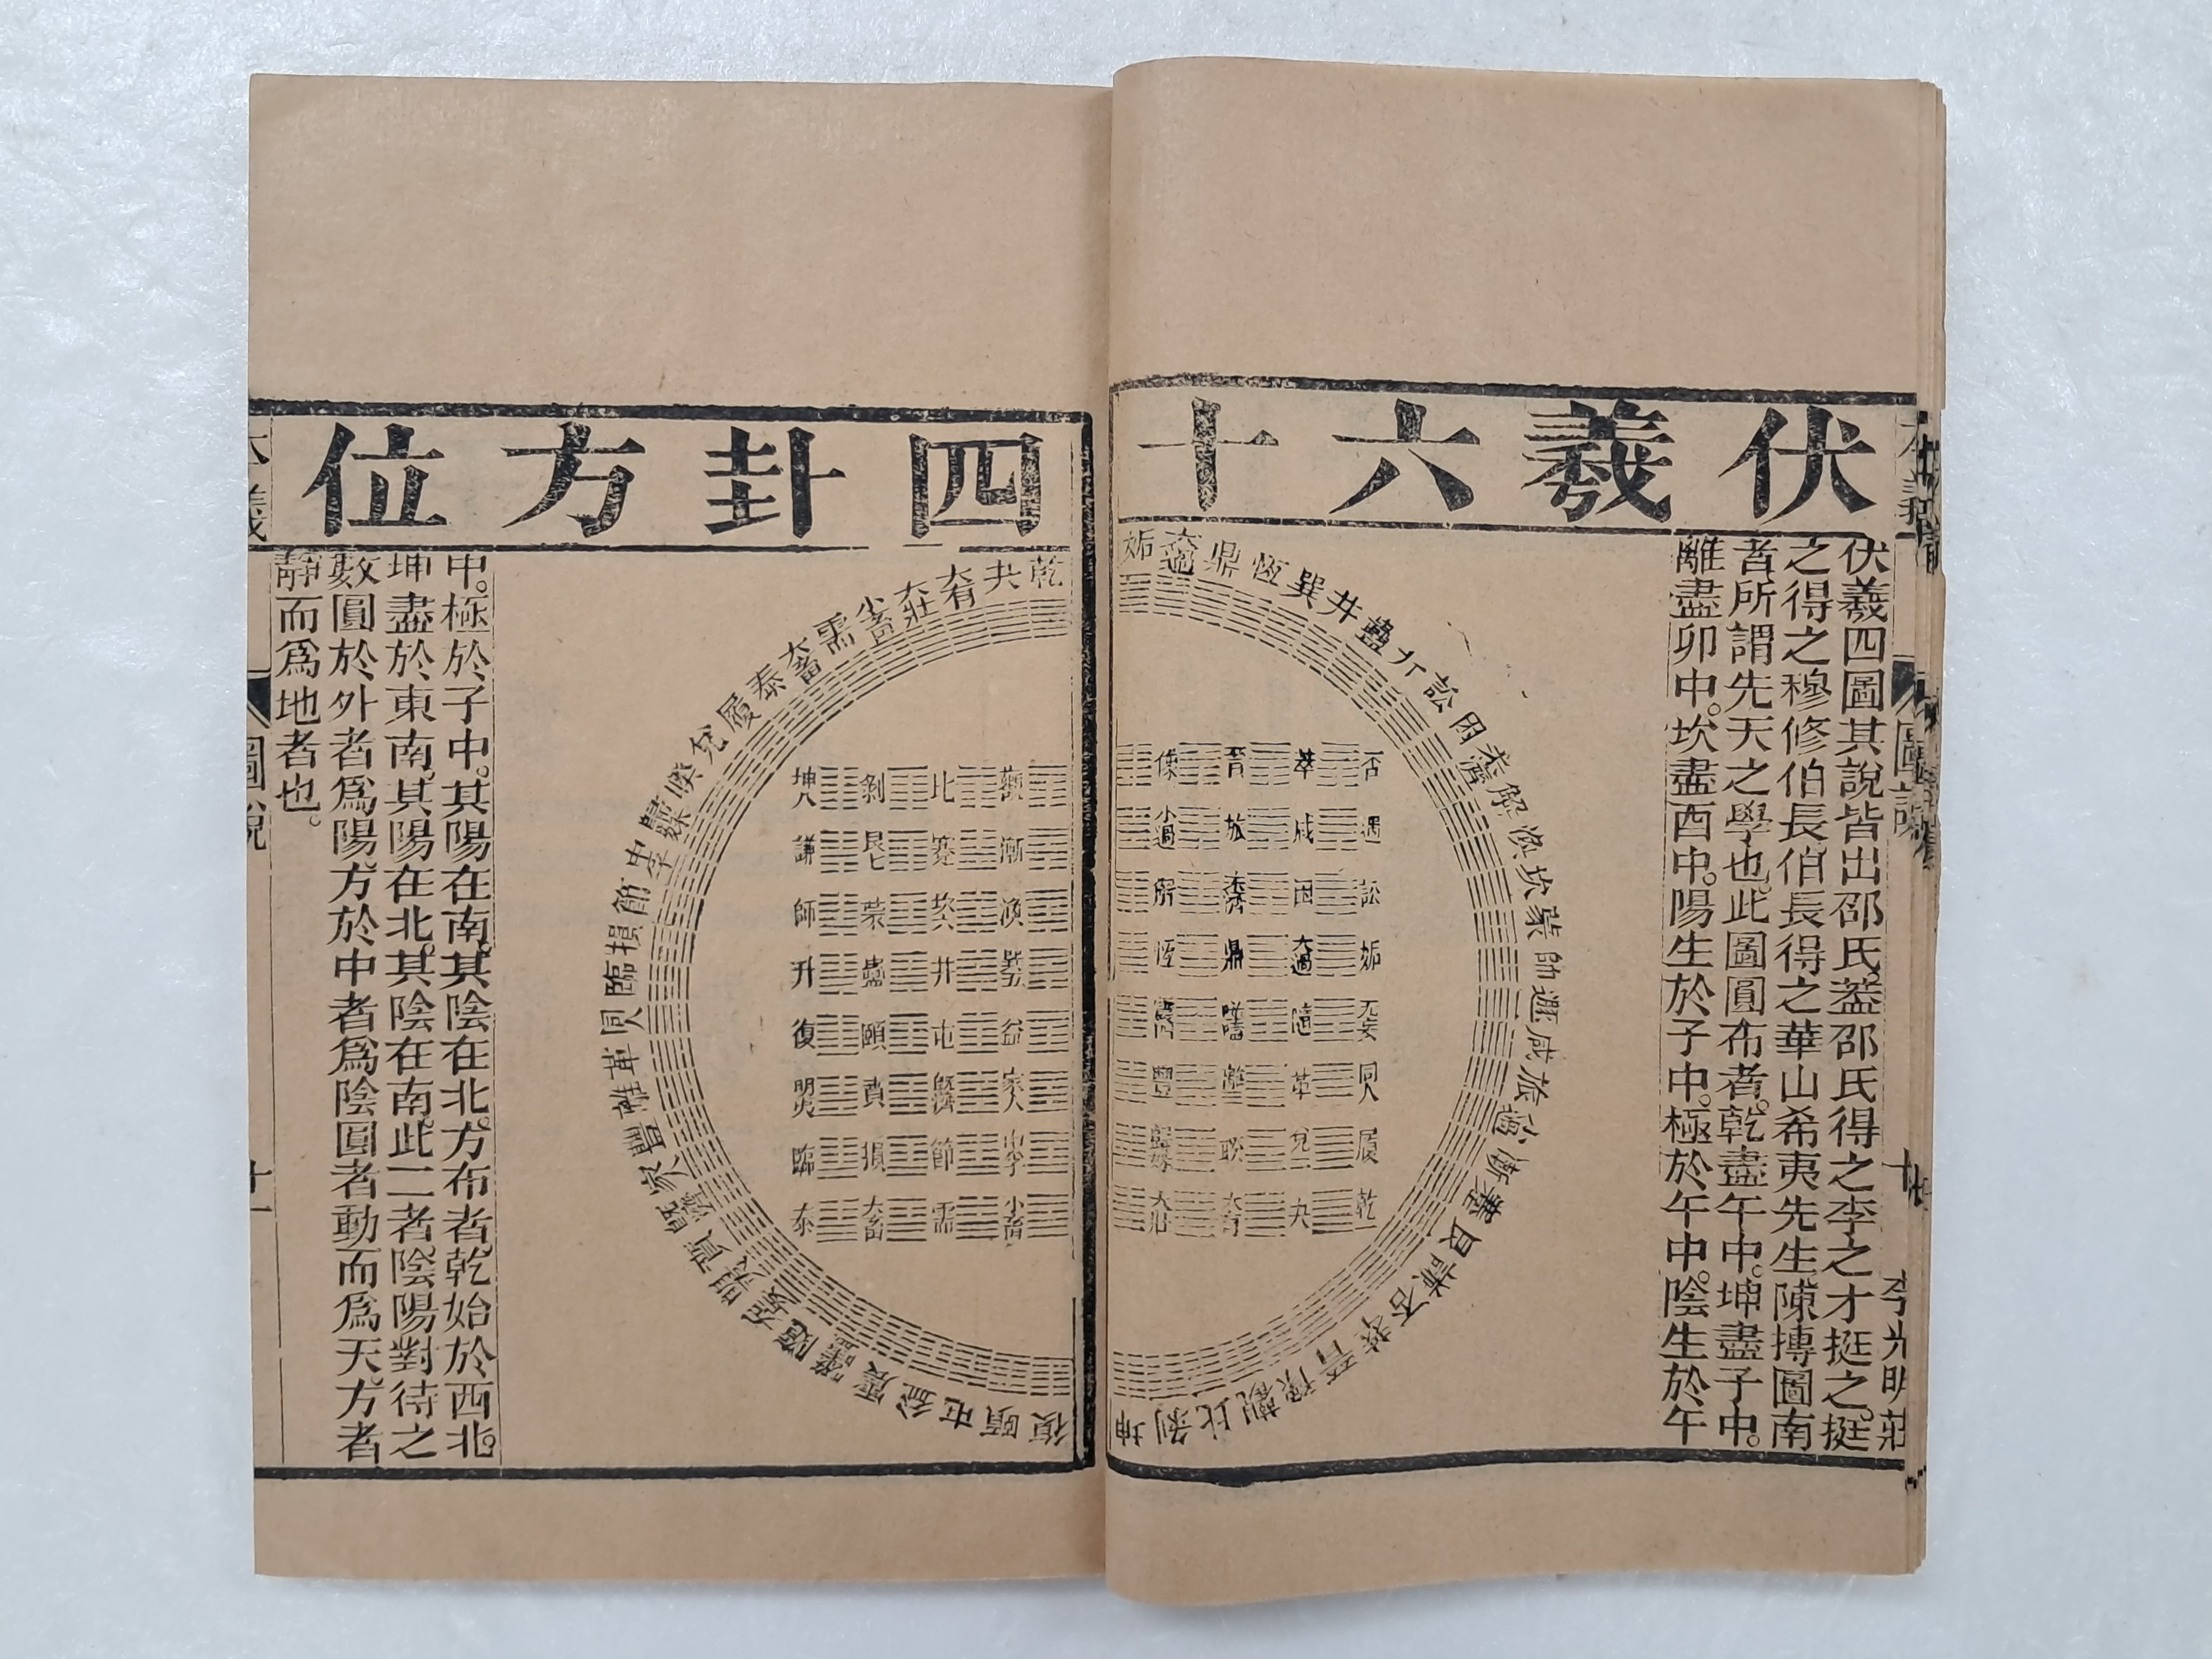 伏羲六十
四卦方位
伏羲四圖其說皆出邵氏。葢邵氏得之李之才挺之。挺
之得之穆修伯長。伯長得之華山希夷先生陳摶圖南
者。所謂先天之學也。此圖圓布者。乾盡午中。坤盡子中。
離盡卯中。坎盡酉中。陽生於子中。極於午中。陰生於午
姤 大過 鼎 恆 巽 井 蠱 升 訟 困 未濟 解 渙 坎 蒙 師 遯 咸 旅 小過 漸 蹇 艮 謙 否 萃 晉 豫 觀 比 剝 坤
否 萃 晉 豫
遯 咸 旅 小過
訟 困 未濟 解
姤 大過 鼎 恆
无妄 隨 噬嗑 震四
同人 革 離三 豐
履 兌二 睽 歸妹
乾一 夬 大有 大壯
乾 夬 大有 大壯 小畜 需 大畜 泰 履 兌 睽 歸妹 中孚 節 損 臨 同人 革 離 豐 家人 既濟 賁 明夷 无妄 隨 噬嗑 震 益 屯 頤 復
觀 比 剝 坤八
漸 蹇 艮七 謙
渙 坎六 蒙 師
巽五 井 蠱 升
益 屯 頤 復
家人 旣濟 賁 明夷
中孚 節 損 臨
小畜 需 大畜 泰
中。極於子中。其陽在南。其陰在北。方布者。乾始於西北。
坤盡於東南。其陽在北。其陰在南。此二者陰陽對待之
數。圓於外者爲陽。方於中者爲陰。圓者動而爲天。方者
靜而爲地者也。
本義
圖說
十一
李光明莊